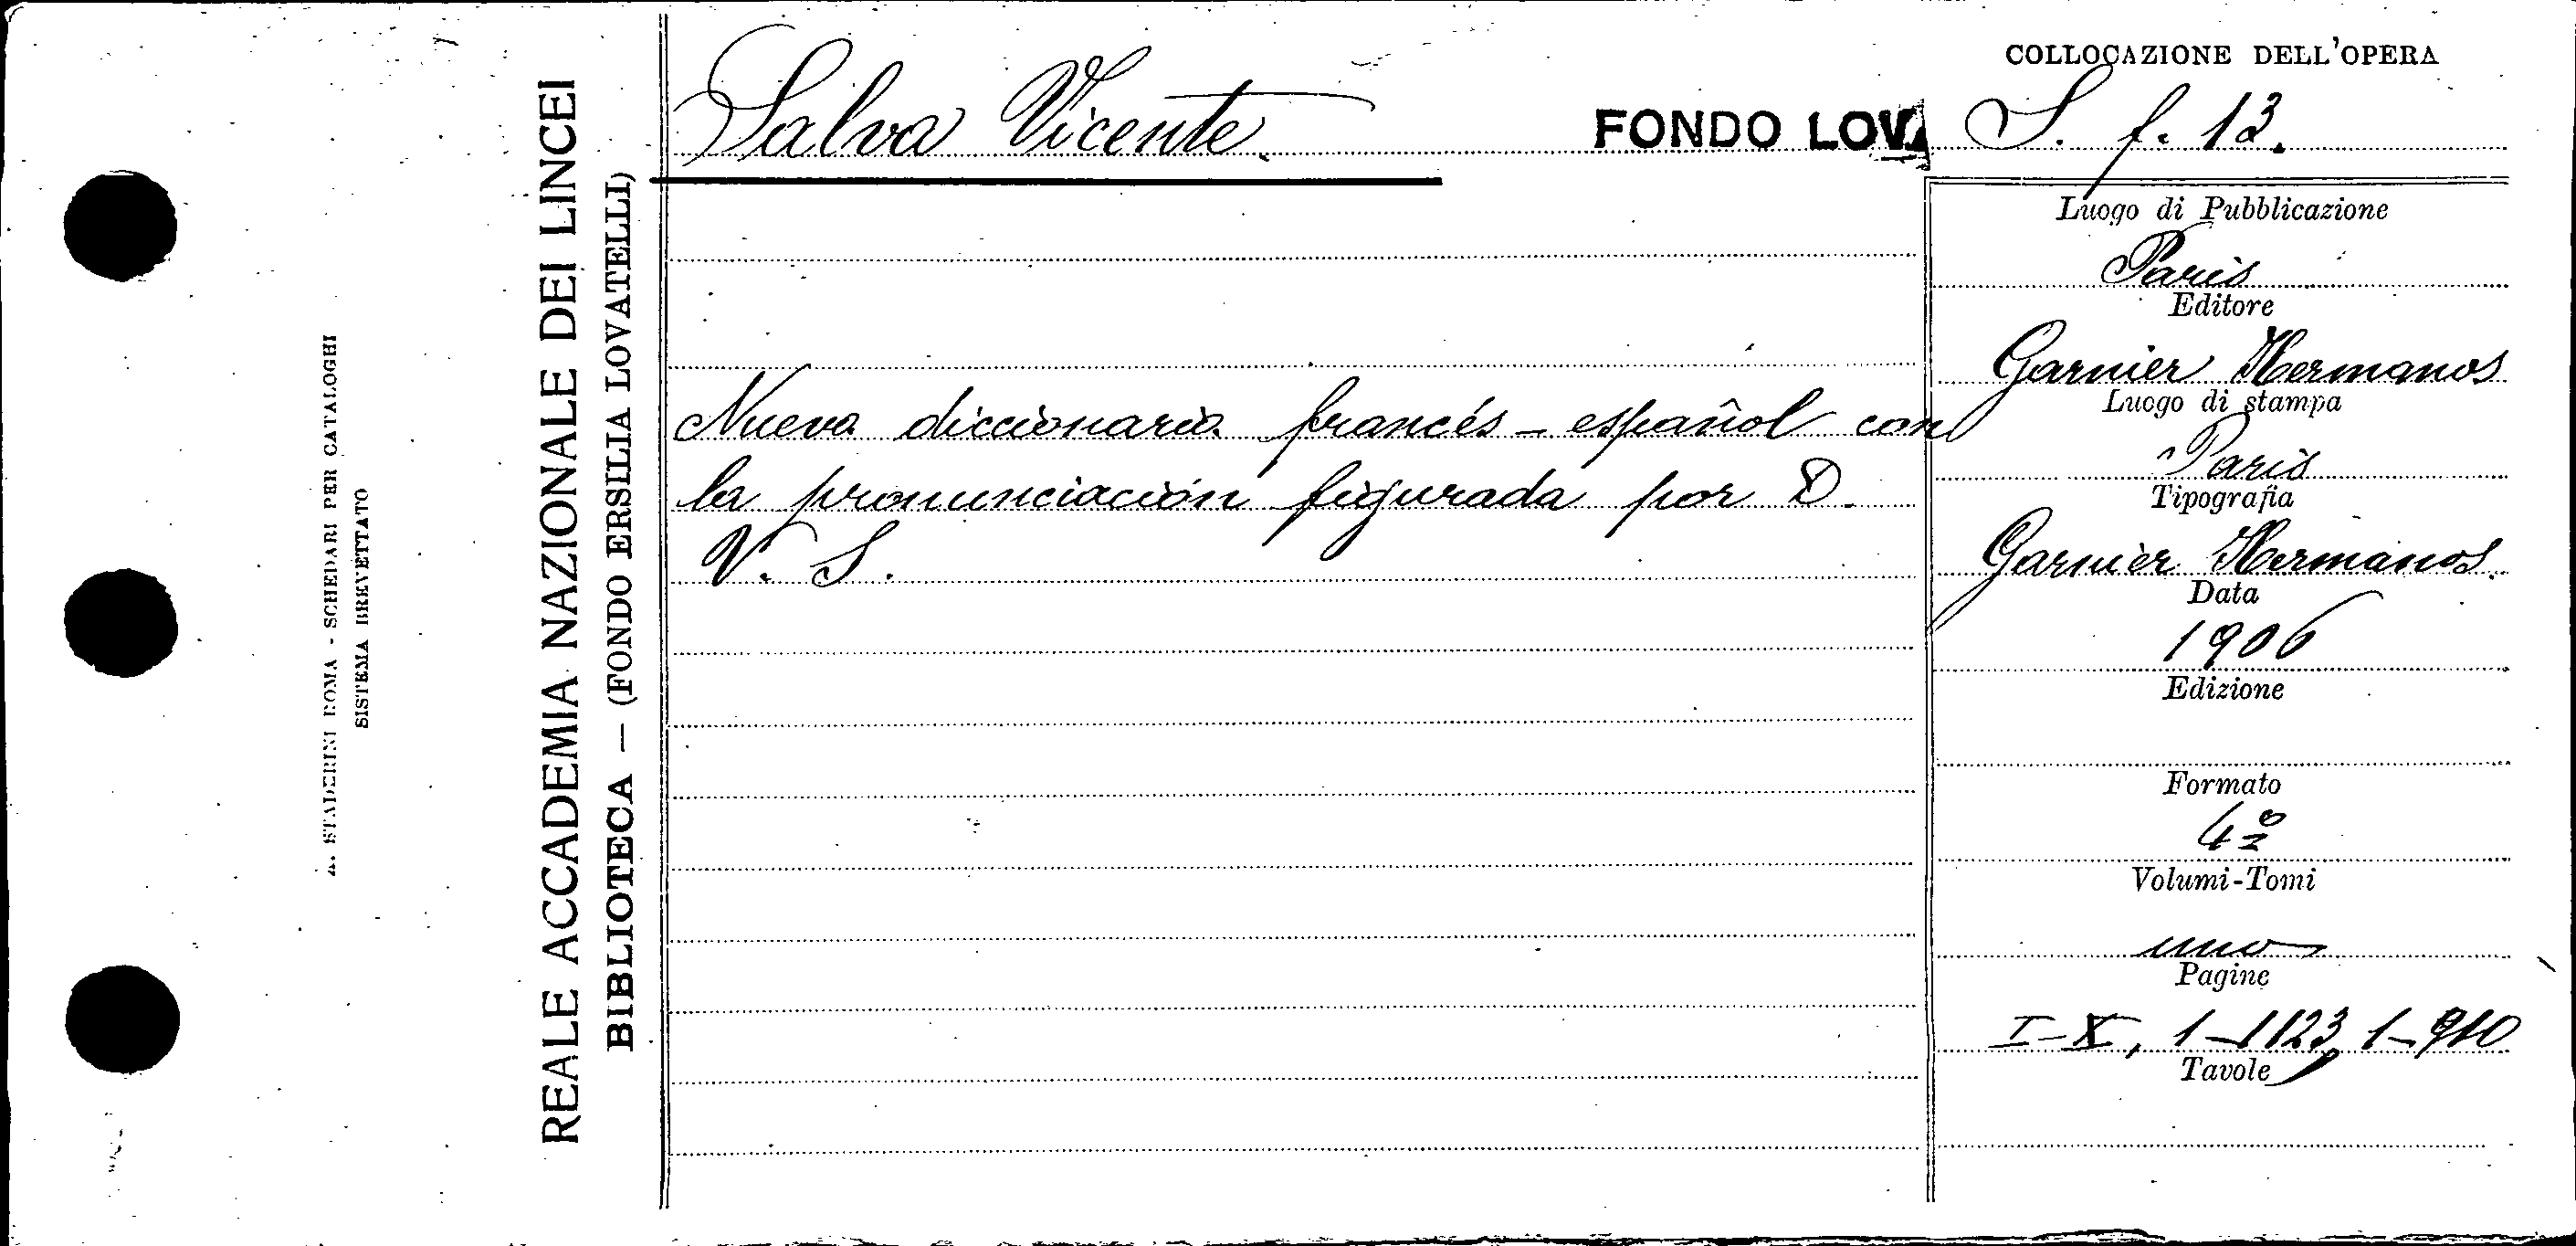 A. STADERINI ROMA - SCHEDARI PER CATALOGHI
SISTEMA BREVETTATO
REALE ACCADEMIA NAZIONALE DEI LINCEI
BIBLIOTECA — (FONDO ERSILIA LOVATELLI)
Salva Vicente.
FONDO LOV.
Nuevo diccionario francés - español con
la pronunciación figurada por D.
V. S.
COLLOCAZIONE DELL'OPERA
S. f. 13.
Luogo di Pubblicazione
Paris
Editore
Garnier Hermanos
Luogo di stampa
Paris
Tipografia
Garnier Hermanos.
Data
1906
Edizione
Formato
4º
Volumi-Tomi
uno
Pagine
I-X, 1-1123, 1-910
Tavole